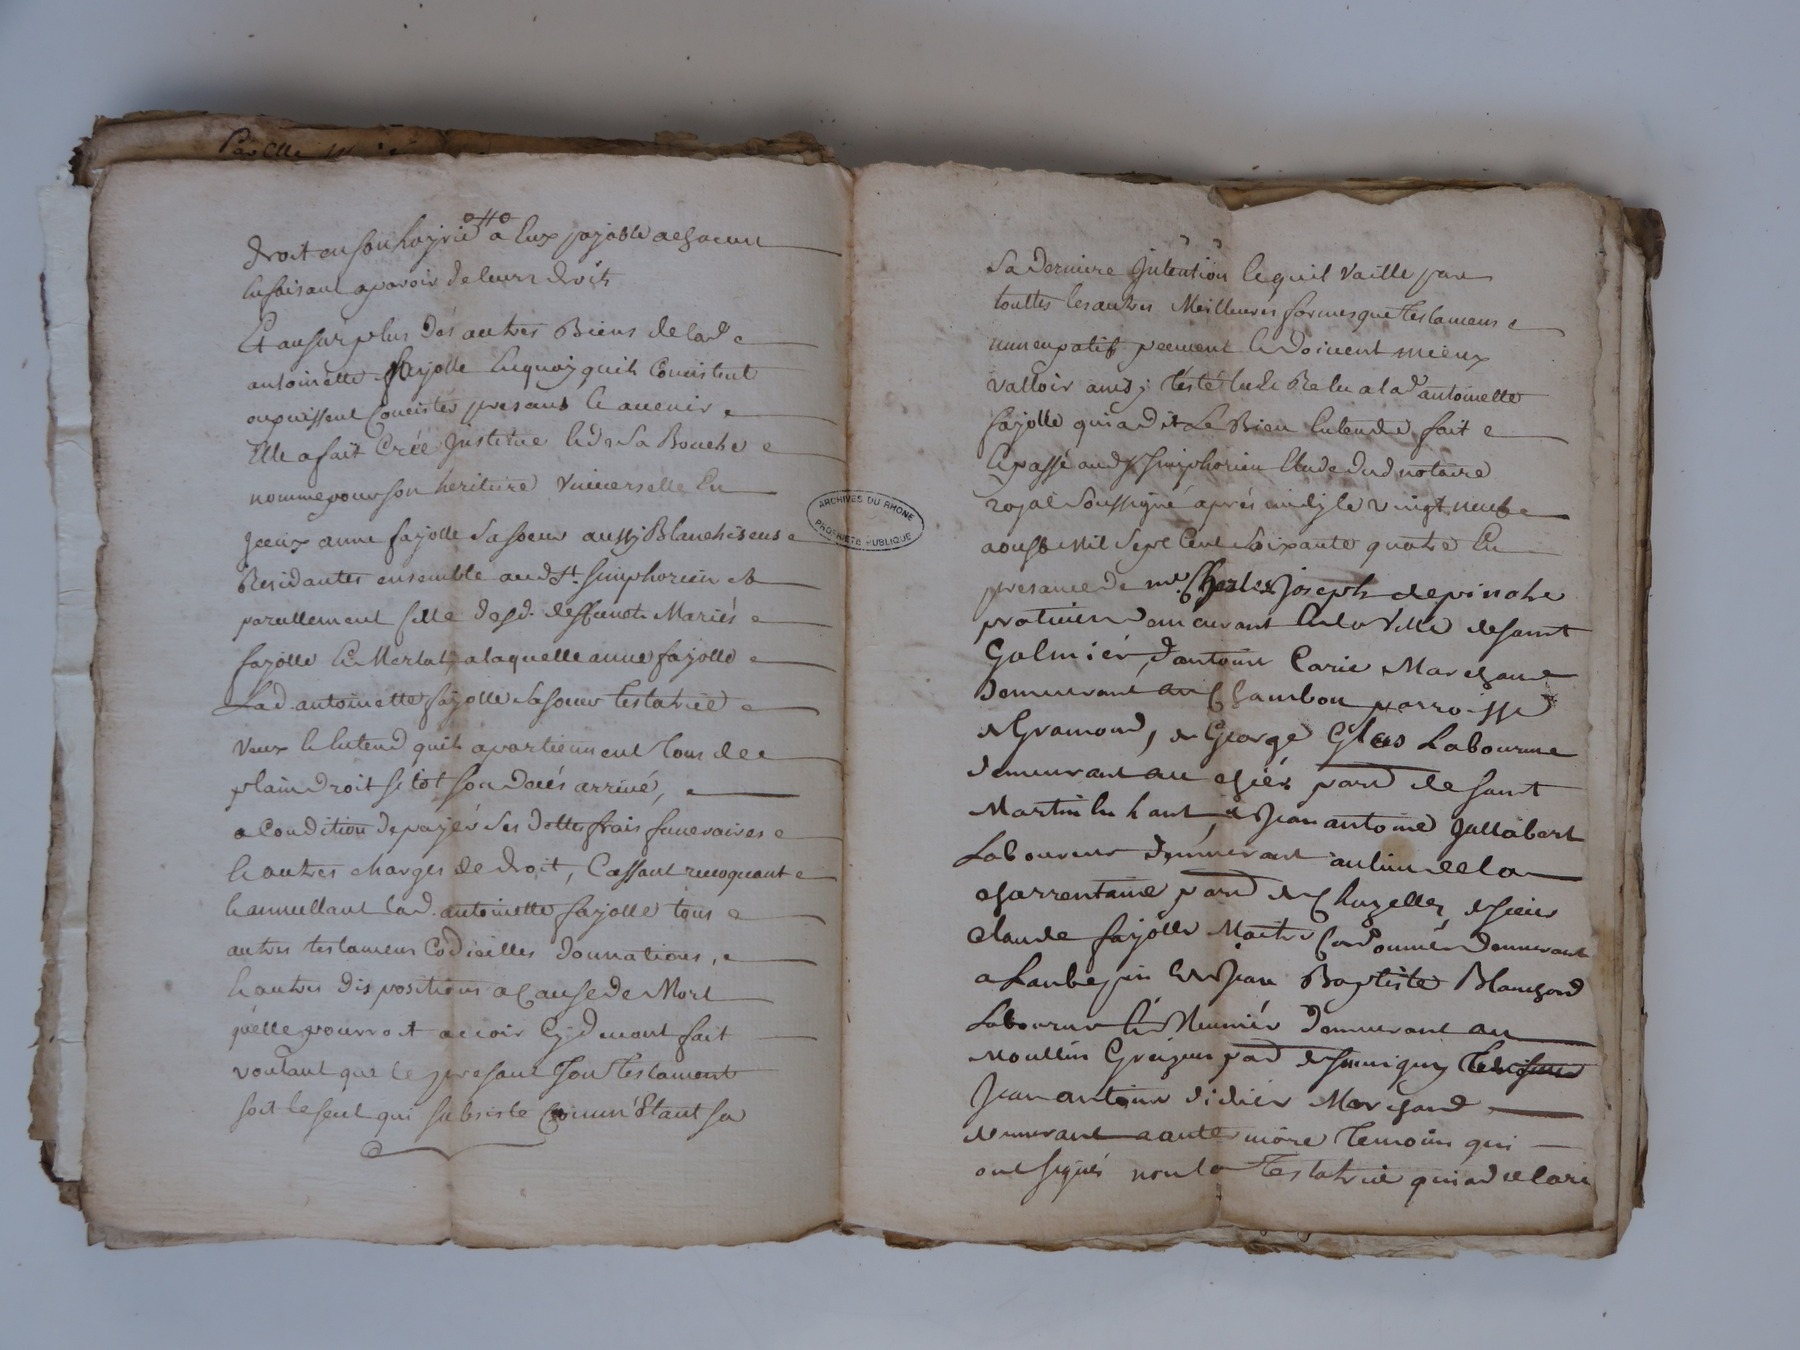 droit en son hoirie a eux payable a chacun
en faisant aparoir de leurs droits
Et au surplus des autres Biens de lad. e
antoinette fayolle En quoy quils Consistent
ou puissent Consister presans & avenir e
Elle a fait Créé Institue & de Sa Bouche e
nomme pour son heritiere Vniverselle En
anne fayolle Sa soeur aussy Blanchiseuse
Residantes ensemble aud St. Simphorien et
parellement fille desd. deffunt Mariés e
fayolle & Merlat, a laquelle anne fayolle e
Lad. antoinette fayolle Sa soeur testatrice e
Veux & Entend quils apartiennent Tous de e
plain droit sitot son decés arrivé, e
a Condition de payér Ses dettes frais funeraires e
& autres charges de droit, Cassant revoquant e
& annullant lad. antoinette fayolle tous e
autres testamens Codicilles donnations, e
& autres dispositions a Cause de Mort
qu'elle pourroit avoir Cydevant fait
voulant que le presant Son Testament
soit le seul qui subsiste Comm' Etant sa
ARCHIVES DU RHONE
PROPRIETE PUBLIQUE
Sa derniere Intention & quil Vaille par
touttes les autres Meilleures formes que testamens e
nuncupatif peuvent & doivent mieux
valloir ainsy testé lu & Relu a lad antoinette
fayolle qui a dit Le Bien Entendre fait e
& passé aud St Simphorien Etude dud notaire
royal Soussigné aprés midy le vingt neuf e
aoust Mil Sept Cent Soixante quatre En
presance de me. Charles Joseph depinohe
praticien demeurant En la Ville de saint
Galmiér, d'antoine Carie Marchand
demeurant au Chambon parroisse
de Gramond, de George Glas Laboureur
demeurant au pard de saint
Martin En haut, de Jean antoine Jullabert
Laboureur demeurant au lieu de la
charrentaine pard de Chazelles, de sieur
claude fayolle Maitre Cordonnier demeurant
a Laubepin & de Jean Baptiste Blanchard
Laboureur & Meunier demeurant au
Moullin pard de
Jean antoine didier Marchand
demeurant a temoins qui
ont signés non la Testatrice qui a declaré